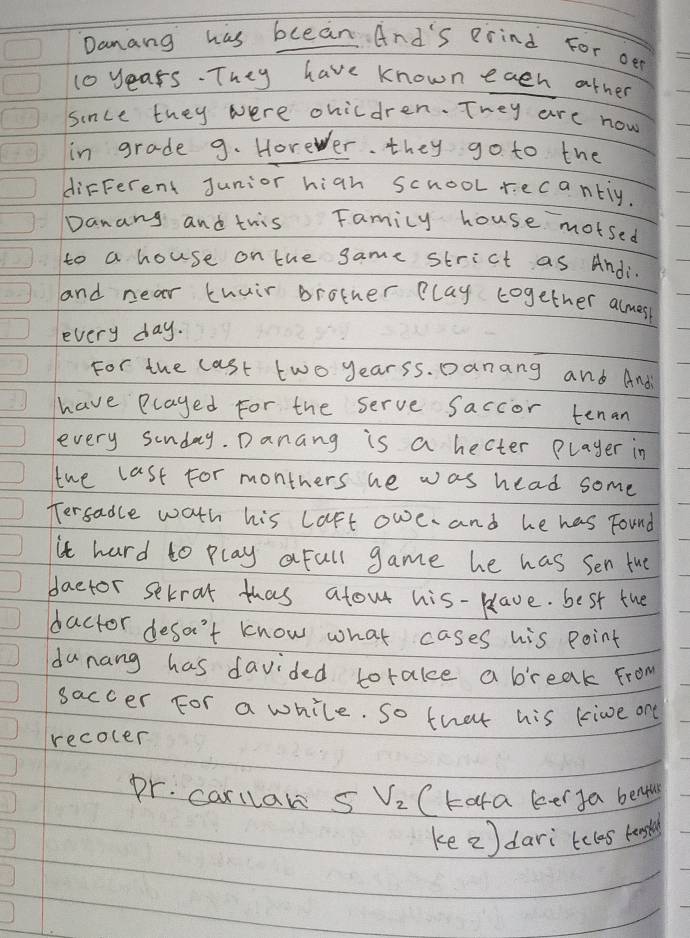 Danang has bcean And's Prind For oer
10 years. They have known each ather
since they were onicdren. They are now
in grade 9. Horewer. they go to the
different Junior high SchooL recantiy.
Danang and this Family house motsed
to a house on the same strict as Andi.
and near thuir brother Play together almost
every day.
For the Last two yearss. Danang and Andi
have Played For the serve Saccor tenan
every sunday. Danang is a hecter Player in
the last For monthers he was head some
Tersadle wath his Laft owe. and he has Found
it hard to Play afull game he has Sen the
daetor sekrat thas atout his-kave. best the
dactor desa't know what cases his Point
danang has davided totake a break From
saccer For a while. So that his kiwe one
recocer
Pr. carilah 5 V2 (kata kerja bentuk
ke 2) dari teks